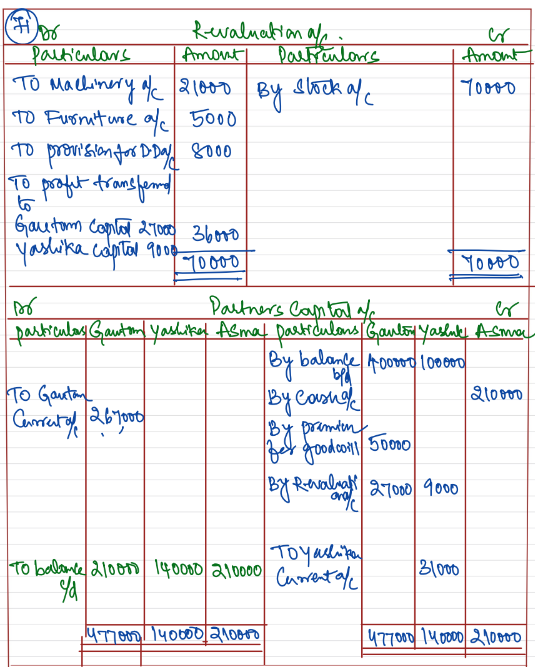 7i
Dr Revaluation a/c. Cr
Particulars Amount Particulars Amount
TO Machinery a/c 21000 By Stock a/c 70000
TO Furniture a/c 5000
TO provision for D.D a/c 8000
TO profit transferred
to
Gautam capital 27000 36000
Yashika capital 9000
70000 70000
Dr Partners Capital a/c Cr
particulars Gautam Yashika Asma particulars Gautam Yashik Asma
By balance b/d 400000 100000
TO Gautam By Cash a/c 210000
Current a/c 267000
By premium
for goodwill 50000
By Revaluation a/c 27000 9000
TO Yashika
To balance c/d 210000 140000 210000 Current a/c 31000
477000 140000 210000 477000 140000 210000